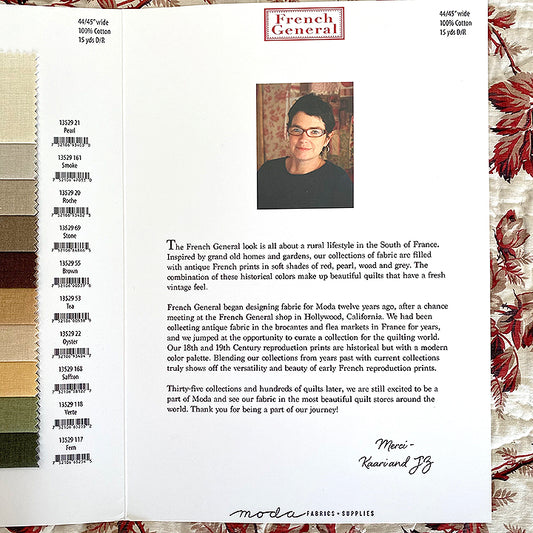 44/45" wide
100% Cotton
15 yds D/R
13529 21
Pearl
13529 161
Smoke
13529 20
Roche
13529 69
Stone
13529 55
Brown
13529 53
Tea
13529 22
Oyster
13529 168
Saffron
13529 118
Verte
13529 117
Fern
French
General
44/45" wide
100% Cotton
15 yds D/R
The French General look is all about a rural lifestyle in the South of France.
Inspired by grand old homes and gardens, our collections of fabric are filled
with antique French prints in soft shades of red, pearl, woad and grey. The
combination of these historical colors make up beautiful quilts that have a fresh
vintage feel.
French General began designing fabric for Moda twelve years ago, after a chance
meeting at the French General shop in Hollywood, California. We had been
collecting antique fabric in the brocantes and flea markets in France for years,
and we jumped at the opportunity to curate a collection for the quilting world.
Our 18th and 19th Century reproduction prints are historical but with a modern
color palette. Blending our collections from years past with current collections
truly shows off the versatility and beauty of early French reproduction prints.
Thirty-five collections and hundreds of quilts later, we are still excited to be a
part of Moda and see our fabric in the most beautiful quilt stores around the
world. Thank you for being a part of our journey!
Merci-
Kaari and JZ
moda FABRICS + SUPPLIES